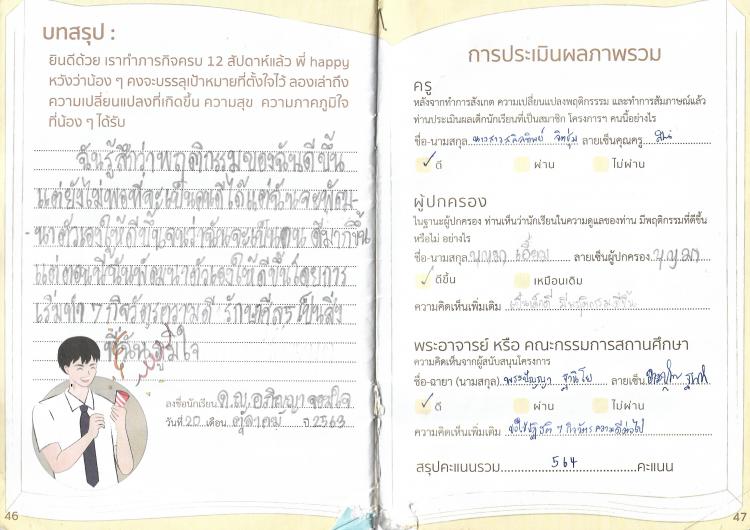 บทสรุป :
ยินดีด้วย เราทำภารกิจครบ 12 สัปดาห์แล้ว พี่ happy
หวังว่าน้อง ๆ คงจะบรรลุเป้าหมายที่ตั้งใจไว้ ลองเล่าถึง
ความเปลี่ยนแปลงที่เกิดขึ้น ความสุข ความภาคภูมิใจ
ที่น้อง ๆ ได้รับ
ฉันรู้สึกว่าพฤติกรรมของฉันดีขึ้น
แต่ยังไม่พอที่จะเป็นคนดีได้แต่ฉันจะพัฒ-
-นาตัวเองให้ดีขึ้นจนว่าฉันจะเป็นคน ดีมากขึ้น
แต่ตอนนี้ฉันพัฒนาตัวเองให้ดีขึ้นโดยการ
เริ่มทำ 7 กิจวัตรความดี รักษาศีล 5 เป็นสิ่ง
ที่ฉันภูมิใจ
ลงชื่อนักเรียน ด.ญ. อภิญญา
วันที่ 20 เดือน ตุลาคม ปี 2563
46
การประเมินผลภาพรวม
ครู
หลังจากทำการสังเกต ความเปลี่ยนแปลงพฤติกรรม และทำการสัมภาษณ์แล้ว
ท่านประเมินผลเด็กนักเรียนที่เป็นสมาชิก โครงการฯ คนนี้อย่างไร
ชื่อ-นามสกุล นางสาว ลายเซ็นคุณครู
ดี ผ่าน ไม่ผ่าน
ผู้ปกครอง
ในฐานะผู้ปกครอง ท่านเห็นว่านักเรียนในความดูแลของท่าน มีพฤติกรรมที่ดีขึ้น
หรือไม่ อย่างไร
ชื่อ-นามสกุล ลายเซ็นผู้ปกครอง
ดีขึ้น เหมือนเดิม
ความคิดเห็นเพิ่มเติม มีพฤติกรรมดีขึ้น
พระอาจารย์ หรือ คณะกรรมการสถานศึกษา
ความคิดเห็นจากผู้สนับสนุนโครงการ
ชื่อ-ฉายา (นามสกุล) พระปัญญา ฐานิโย ลายเซ็น
ดี ผ่าน ไม่ผ่าน
ความคิดเห็นเพิ่มเติม 7 กิจวัตรความดีต่อไป
สรุปคะแนนรวม 564 คะแนน
47